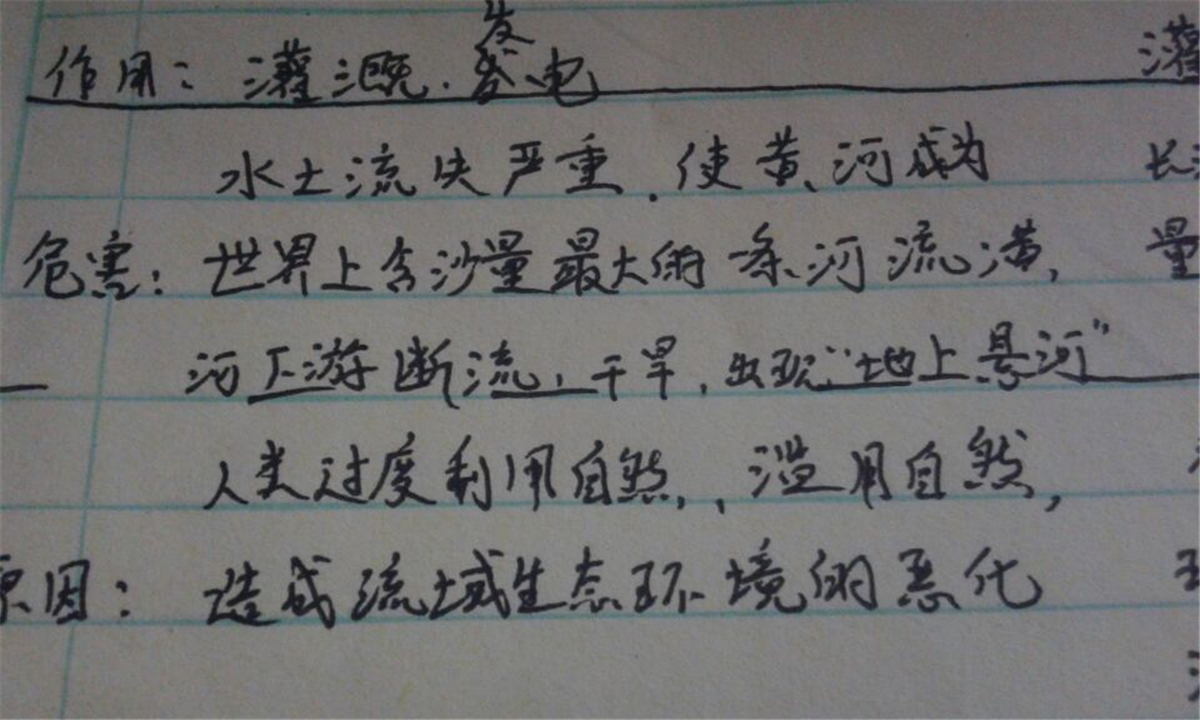 作用：灌溉.发电 灌
水土流失严重.使黄河成为 长
危害：世界上含沙量最大的一条河流潢, 量
河下游断流,干旱,出现"地上悬河"
人类过度利用自然,,滥用自然,
原因：造成流域生态环境的恶化